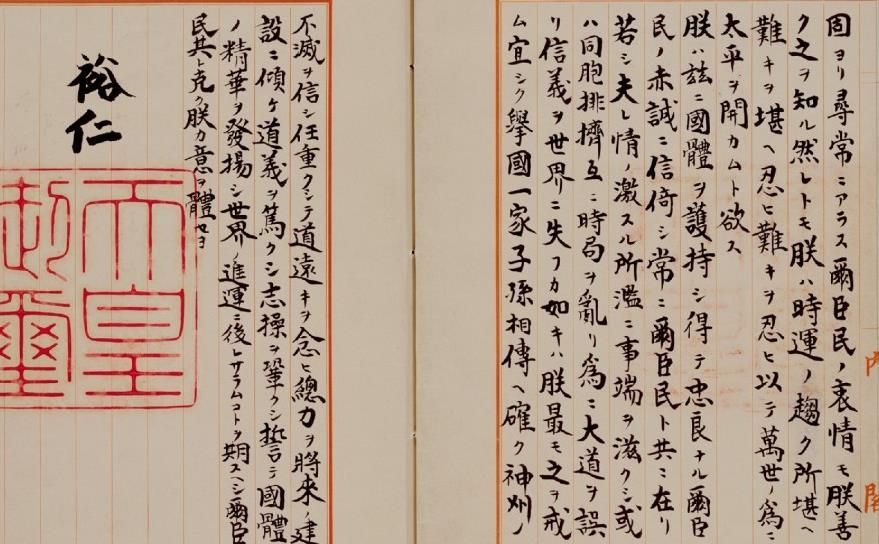 内閣
固ヨリ尋常ニアラス爾臣民ノ衷情モ朕善
ク之ヲ知ル然レトモ朕ハ時運ノ趨ク所堪ヘ
難キヲ堪ヘ忍ヒ難キヲ忍ヒ以テ萬世ノ爲ニ
太平ヲ開カムト欲ス
朕ハ玆ニ國體ヲ護持シ得テ忠良ナル爾臣
民ノ赤誠ニ信倚シ常ニ爾臣民ト共ニ在リ
若シ夫レ情ノ激スル所濫ニ事端ヲ滋クシ或
ハ同胞排擠互ニ時局ヲ亂リ爲ニ大道ヲ誤
リ信義ヲ世界ニ失フカ如キハ朕最モ之ヲ戒
ム宜シク擧國一家子孫相傳ヘ確ク神州ノ
不滅ヲ信シ任重クシテ道遠キヲ念ヒ總力ヲ將來ノ建
設ニ傾ケ道義ヲ篤クシ志操ヲ鞏クシ誓テ國體
ノ精華ヲ發揚シ世界ノ進運ニ後レサラムコトヲ期スヘシ爾臣
民其レ克ク朕カ意ヲ體セヨ
裕仁
天皇
御璽